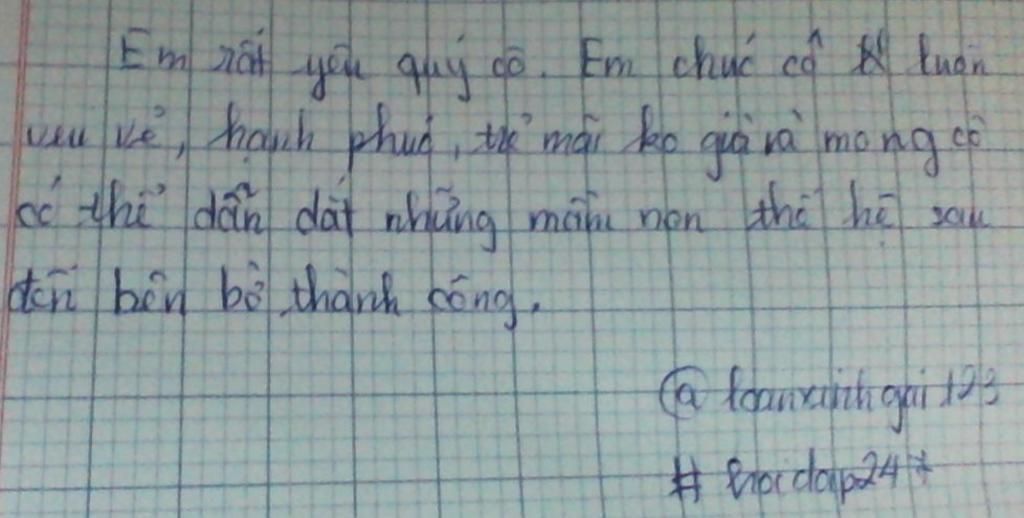 Em rất yêu quý cô. Em chúc cô luôn
vui vẻ, hạnh phúc, trẻ mãi ko già và mong cô
có thể dẫn dắt những mầm non thế hệ sau
đến bên bờ thành công.
@ toanxinhgai123
# hoidap247